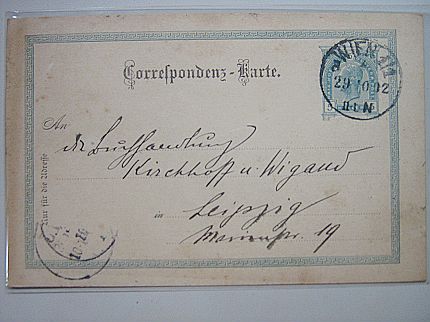 Correspondenz-Karte.
WIEN
29 10 02
N
5
An
die Buchhandlung
Kirchhoff u. Wigand
in Leipzig
Marienstr. 19
Nur für die Adresse